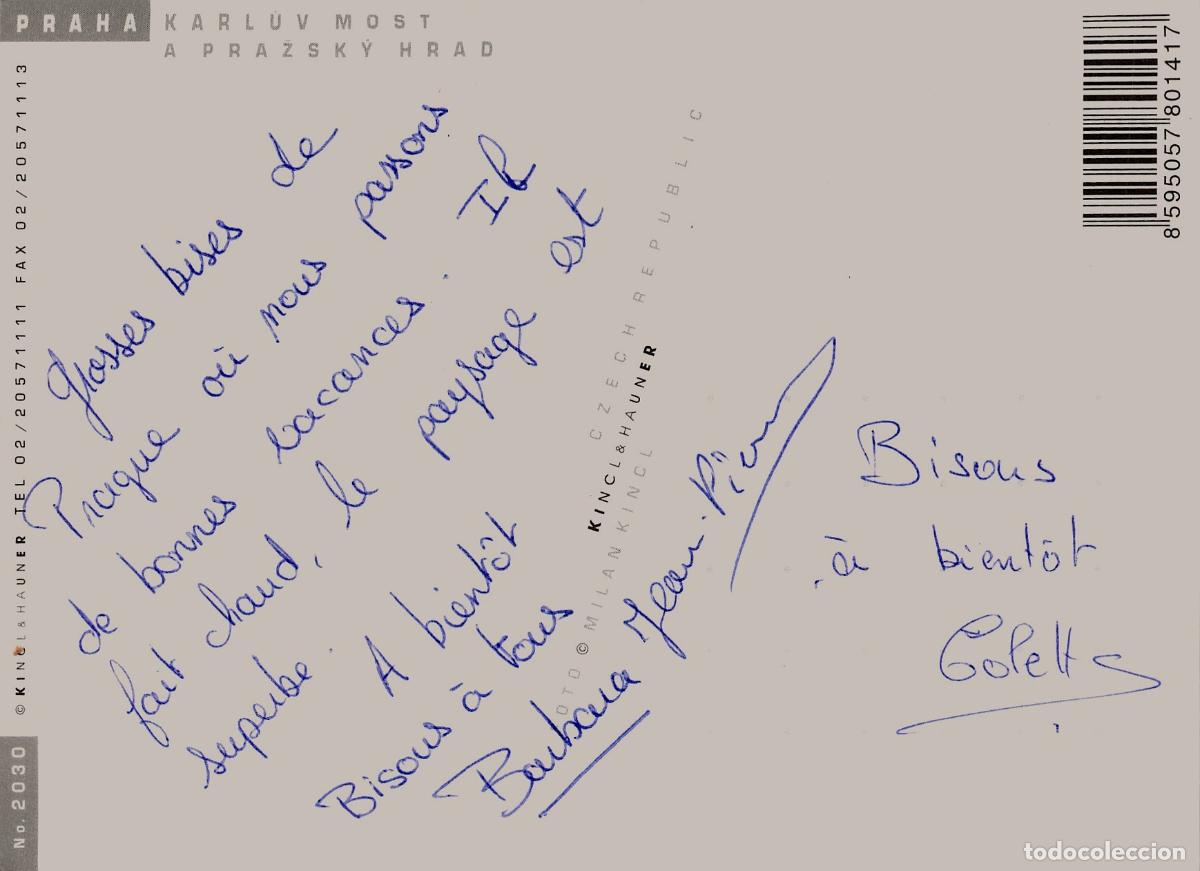 PRAHA
KARLŮV MOST
A PRAŽSKÝ HRAD
8 595057 801417
© KINCL & HAUNER TEL 02/20571111 FAX 02/20571113
No. 2030
Grosses bises de
Prague où nous passons
de bonnes vacances. Il
fait chaud, le paysage est
superbe. A bientôt
Bisous à tous
Barbara
Jean-Pierre
FOTO © MILAN KINCL
KINCL & HAUNER
CZECH REPUBLIC
Bisous
à bientôt
Colette
todocoleccion